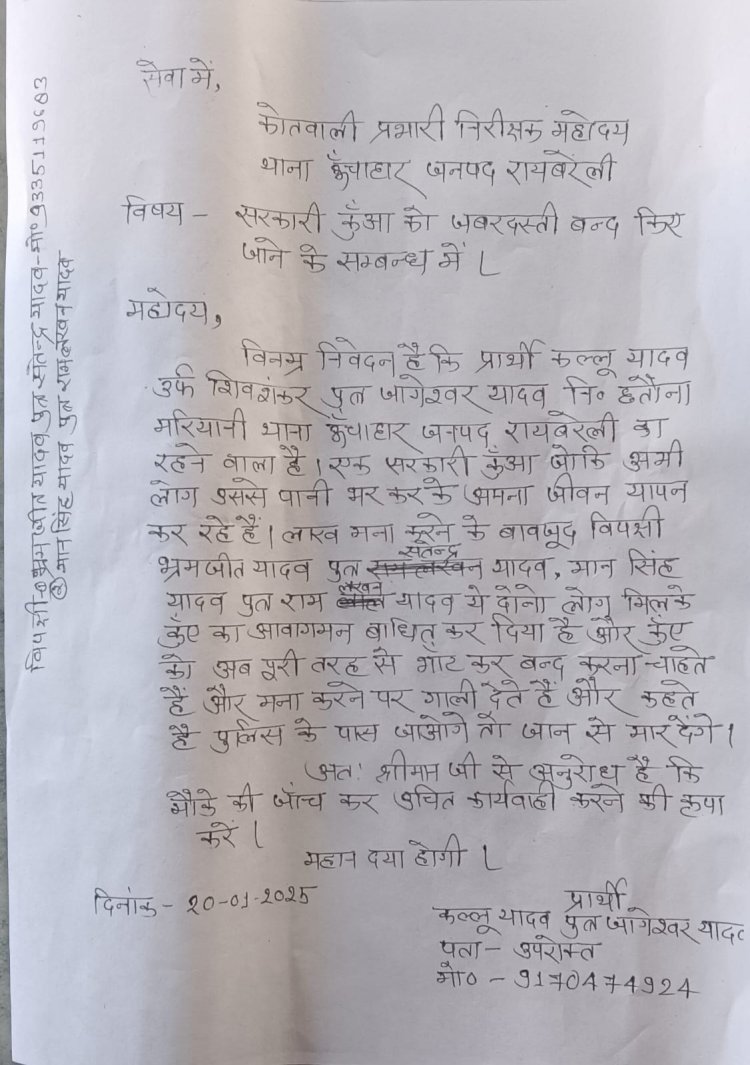 सेवा में,
कोतवाली प्रभारी निरीक्षक महोदय
थाना ऊँचाहार जनपद रायबरेली
विषय - सरकारी कुँआ को जबरदस्ती बन्द किए
जाने के सम्बन्ध में।
महोदय,
विनम्र निवेदन है कि प्रार्थी कल्लू यादव
उर्फ शिवशंकर पुत्र जागेश्वर यादव नि० छतौना
मरियानी थाना ऊँचाहार जनपद रायबरेली का
रहने वाला है। एक सरकारी कुँआ जोकि अभी
लोग उससे पानी भर कर के अपना जीवन यापन
कर रहे हैं। लाख मना करने के बावजूद विपक्षी
भ्रमजीत यादव पुत्र सतेन्द्र यादव, मान सिंह
यादव पुत्र राम लखन यादव ये दोनो लोग मिलके
कुँए का आवागमन बाधित कर दिया है और कुँए
को अब पूरी तरह से भाँट कर बन्द करना चाहते
हैं और मना करने पर गाली देते हैं और कहते
है पुलिस के पास जाओगे तो जान से मार देंगे।
अतः श्रीमान जी से अनुरोध है कि
मौके की जाँच कर उचित कार्यवाही करने की कृपा
करें।
महान दया होगी।
दिनांक - 20-01-2025
प्रार्थी
कल्लू यादव पुत्र जागेश्वर यादव
पता - उपरोक्त
मो० - 9170474924
विपक्षी-① भ्रमजीत यादव पुत्र सतेन्द्र यादव-मो० 9335119683
② मान सिंह यादव पुत्र रामलखन यादव